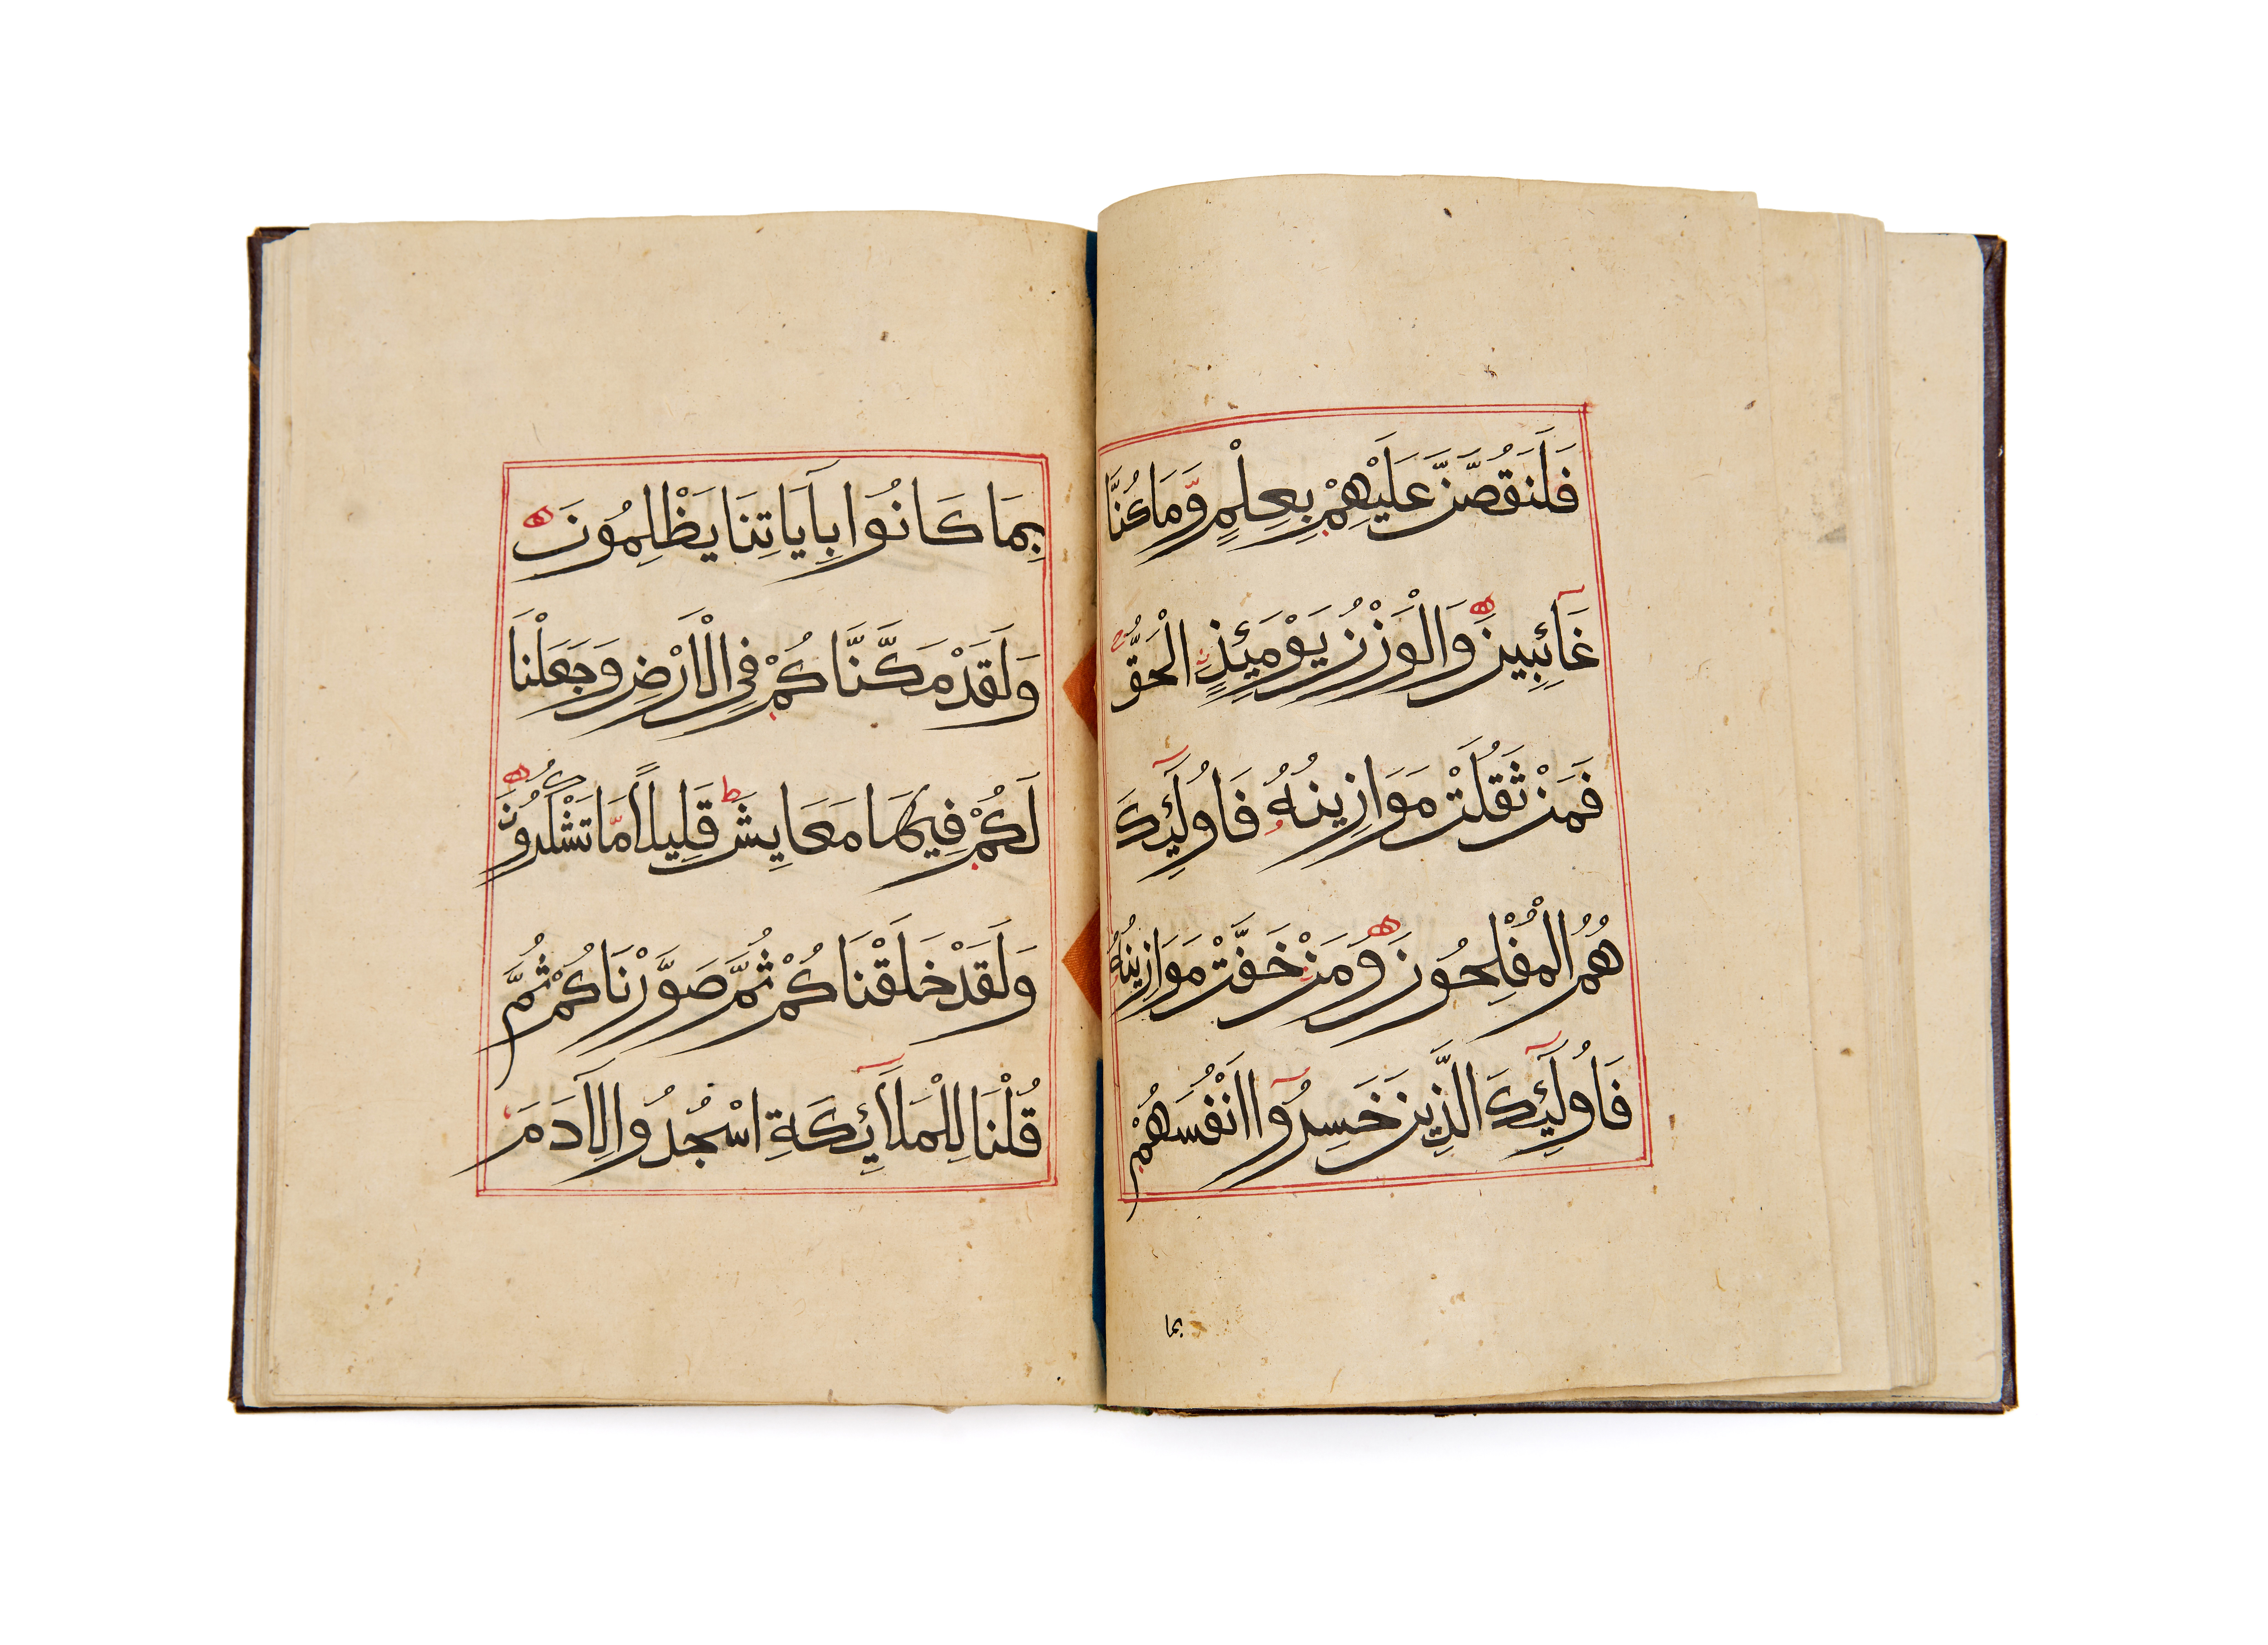 فَلَنَقُصَّنَّ عَلَيْهِمْ بِعِلْمٍ وَّمَا كُنَّا
غَآئِبِينَ ۝ وَالْوَزْنُ يَوْمَئِذٍ الْحَقُّ ج
فَمَنْ ثَقُلَتْ مَوَازِينُهُ فَاُولَٓئِكَ
هُمُ الْمُفْلِحُونَ ۝ وَمَنْ خَفَّتْ مَوَازِينُهُ
فَاُولَٓئِكَ الَّذِينَ خَسِرُوٓا اَنْفُسَهُمْ
بما
بِمَا كَانُوا بِآَيَاتِنَا يَظْلِمُونَ ۝
وَلَقَدْ مَكَّنَّاكُمْ فِي الْاَرْضِ وَجَعَلْنَا
لَكُمْ فِيهَا مَعَايِشَ ط قَلِيلاً مَّا تَشْكُرُونَ ۝
وَلَقَدْ خَلَقْنَاكُمْ ثُمَّ صَوَّرْنَاكُمْ ثُمَّ
قُلْنَا لِلْمَلَآئِكَةِ اسْجُدُوا لِآَدَمَ